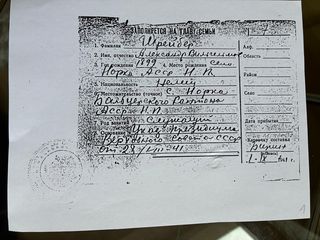 ЗАПОЛНЯЕТСЯ НА ГЛАВУ СЕМЬИ
1. Фамилия Шрейбер
2. Имя, отчество Александр
3. Год рождения 1899 4. Место рождения село
Норка АССР Н.П.
Национальность Немец
6. Местожительство (точное) С. Норка
Бальцерского Кантона
АССР Н.П.
Род занятий Служащий
Основание Указ Президиума
Верховного Совета СССР
от 28/VIII-41
Аяф.
Область
Район
Село
Дата прибытия
Карточку составил
1-IX